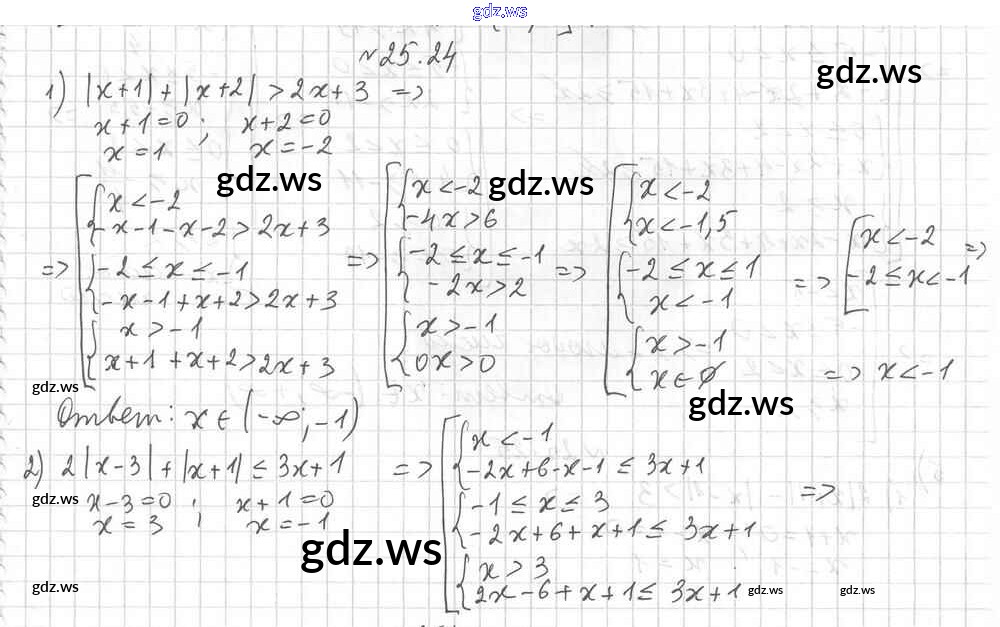 gdz.ws
№25.24
gdz.ws
1) |x+1| + |x+2| > 2x+3 =>
x+1=0 ; x+2=0
x=1 x=-2
gdz.ws gdz.ws
=> [ { x<-2 ; -x-1-x-2>2x+3 { -2≤x≤-1 ; -x-1+x+2>2x+3 { x>-1 ; x+1+x+2>2x+3
=> [ { x<-2 ; -4x>6 { -2≤x≤-1 ; -2x>2 { x>-1 ; 0x>0
=> [ { x<-2 ; x<-1,5 { -2≤x≤1 ; x<-1 { x>-1 ; x∈∅
=> [ x<-2 ; -2≤x<-1 =>
=> x<-1
gdz.ws
gdz.ws
Ответ: x∈(-∞;-1)
2) 2|x-3| + |x+1| ≤ 3x+1
x-3=0 ; x+1=0
x=3 ; x=-1
=> [ { x<-1 ; -2x+6-x-1≤3x+1 { -1≤x≤3 ; -2x+6+x+1≤3x+1 { x>3 ; 2x-6+x+1≤3x+1
=>
gdz.ws
gdz.ws
gdz.ws gdz.ws gdz.ws